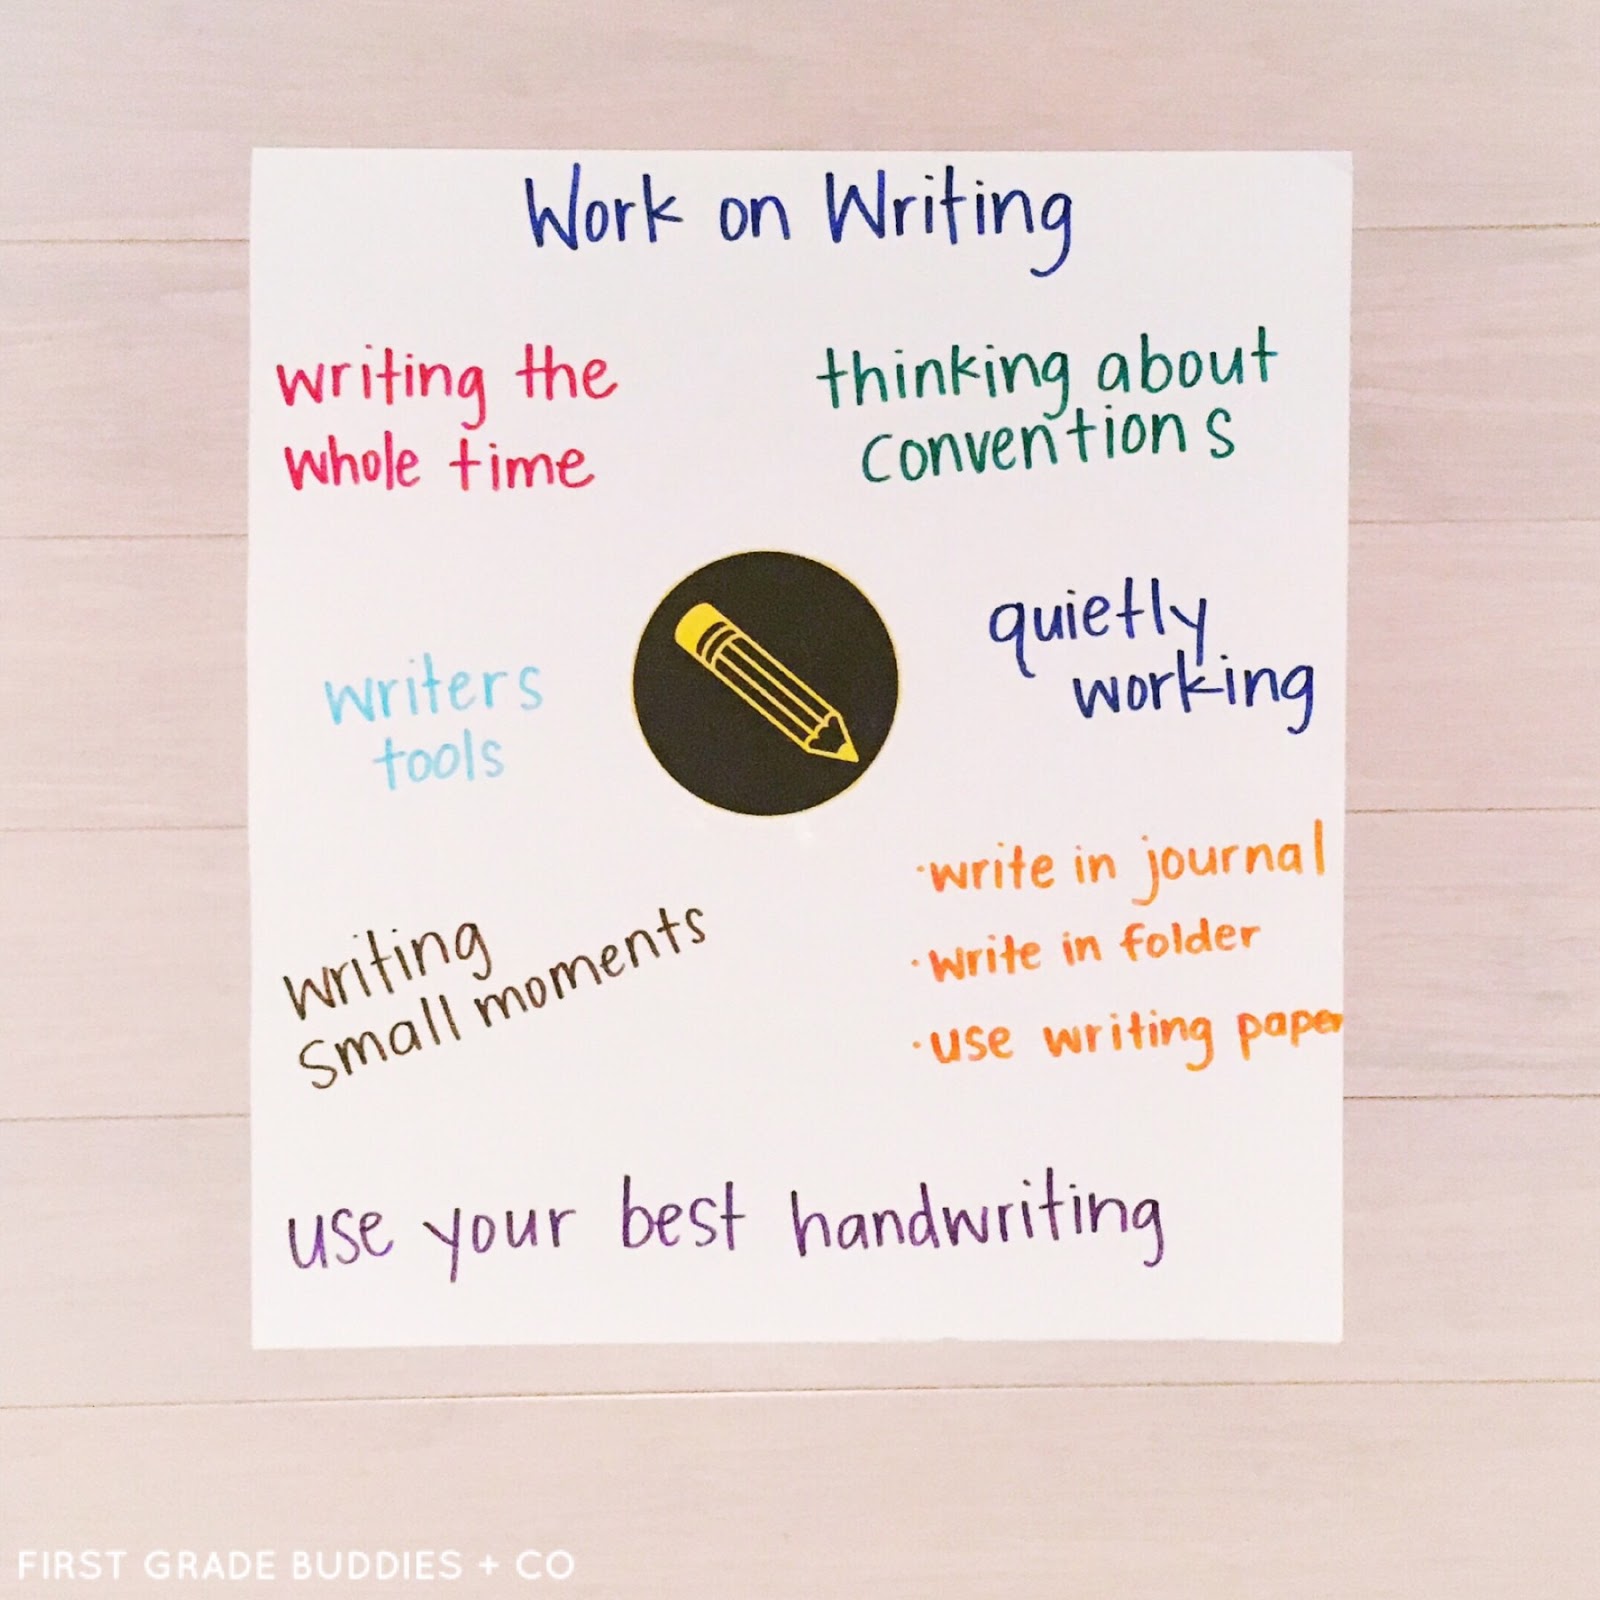 Work on Writing
writing the
whole time
thinking about
conventions
writers
tools
quietly
working
writing
small moments
·write in journal
·write in folder
·use writing paper
use your best handwriting
FIRST GRADE BUDDIES + CO